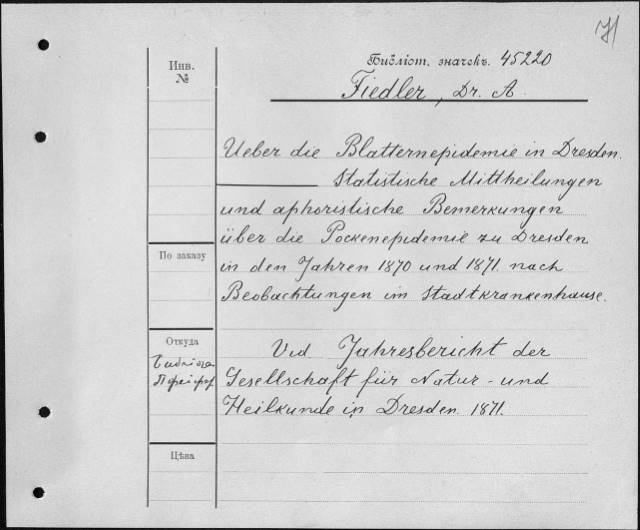 Инв.
№
Библіот. значекъ. 45220
Fiedler, Dr. A.
Ueber die Blatternepidemie in Dresden.
Statistische Mittheilungen
und aphoristische Bemerkungen
über die Pockenepidemie zu Dresden
По заказу
in den Jahren 1870 und 1871. nach
Beobachtungen im Stadtkrankenhause.
Откуда
Vid Jahresbericht der
Gesellschaft für Natur- und
Heilkunde in Dresden. 1871.
Цѣна